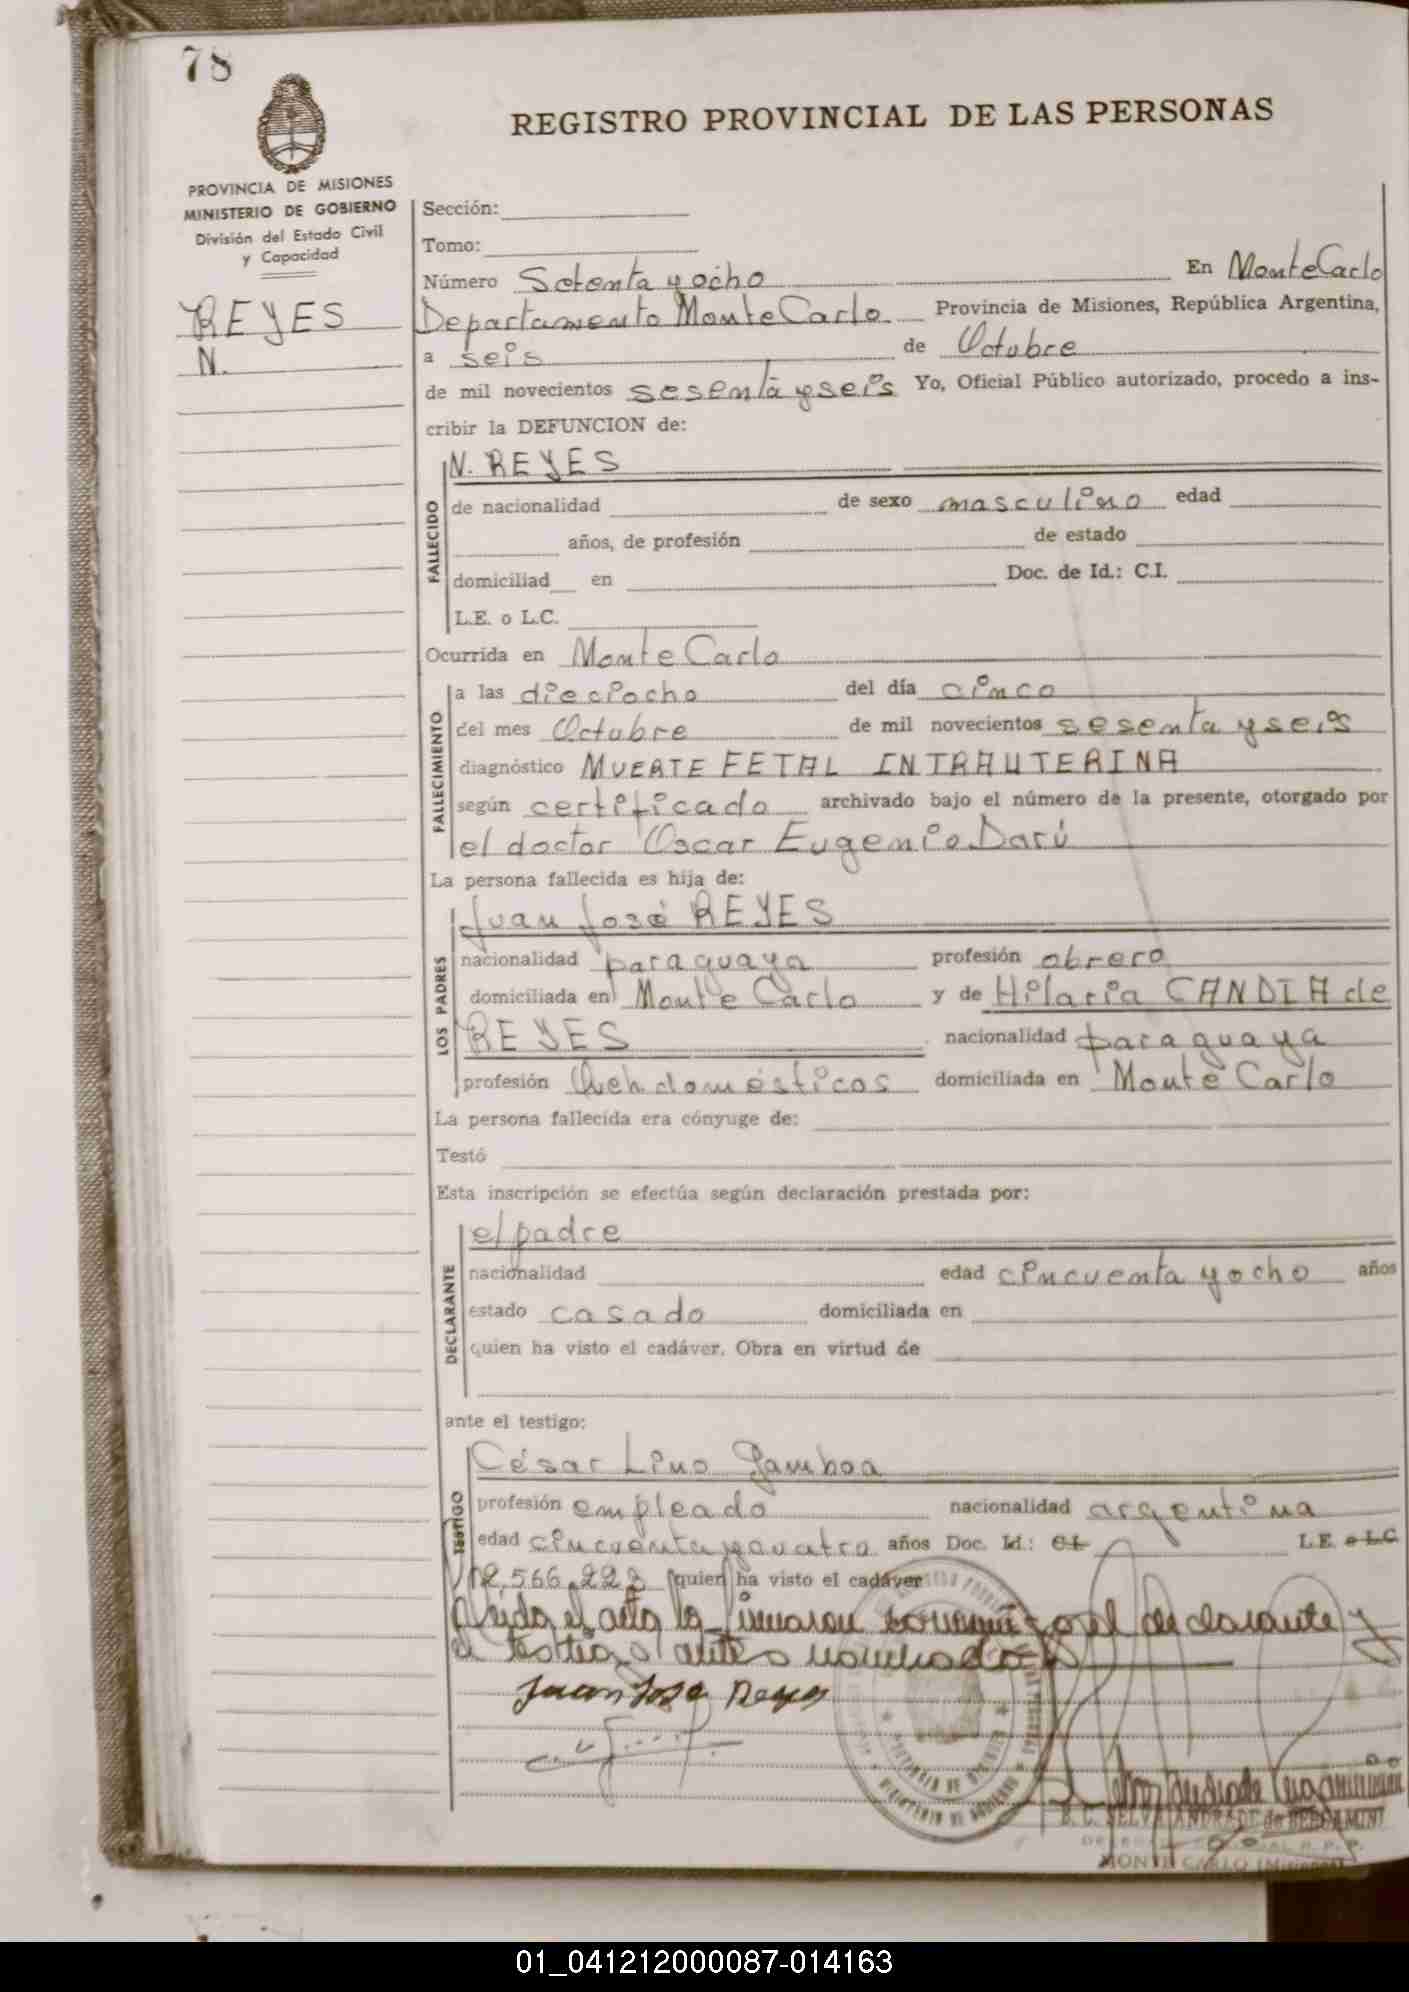 78
REGISTRO PROVINCIAL DE LAS PERSONAS
PROVINCIA DE MISIONES
MINISTERIO DE GOBIERNO
División del Estado Civil
y Capacidad
REYES
N.
Sección:
Tomo:
Número Setenta y ocho En Monte Carlo
Departamento Monte Carlo Provincia de Misiones, República Argentina,
a seis de Octubre
de mil novecientos sesenta y seis Yo, Oficial Público autorizado, procedo a ins-
cribir la DEFUNCION de:
N. REYES
FALLECIDO
de nacionalidad de sexo masculino edad
años, de profesión de estado
domiciliad en Doc. de Id.: C.I.
L.E. o L.C.
Ocurrida en Monte Carlo
FALLECIMIENTO
a las dieciocho del día cinco
del mes Octubre de mil novecientos sesenta y seis
diagnóstico MUERTE FETAL INTRAUTERINA
según certificado archivado bajo el número de la presente, otorgado por
el doctor Oscar Eugenio Darú
La persona fallecida es hija de:
LOS PADRES
Juan José REYES
nacionalidad paraguaya profesión obrero
domiciliada en Monte Carlo y de Hilaria CANDIA de
REYES nacionalidad paraguaya
profesión Queh. domésticos domiciliada en Monte Carlo
La persona fallecida era cónyuge de:
Testó
Esta inscripción se efectúa según declaración prestada por:
DECLARANTE
el padre
nacionalidad edad cincuenta y ocho años
estado casado domiciliada en
quien ha visto el cadáver. Obra en virtud de
ante el testigo:
TESTIGO
César Lino Gamboa
profesión empleado nacionalidad argentina
edad cincuenta y cuatro años Doc. Id.: CI. L.E. o L.C.
2.566.223 quien ha visto el cadáver
Leída el acta la firmaron conmigo el declarante y
el testigo antes nombrado
Juan José Reyes
PROVINCIA DE MISIONES
MINISTERIO DE GOBIERNO
E. C. SELVA ANDRADE de BERGAMINI
MONTE CARLO (Misiones)
01_041212000087-014163